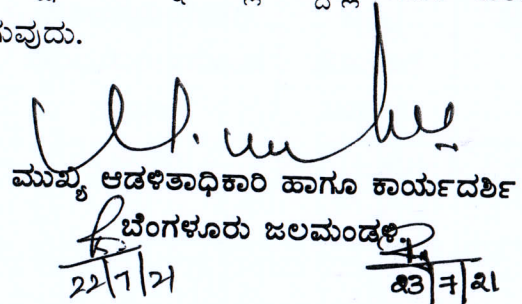 ುವುದು.
ಮುಖ್ಯ ಆಡಳಿತಾಧಿಕಾರಿ ಹಾಗೂ ಕಾರ್ಯದರ್ಶಿ
ಬೆಂಗಳೂರು ಜಲಮಂಡಳಿ
22/7/21 23/7/21